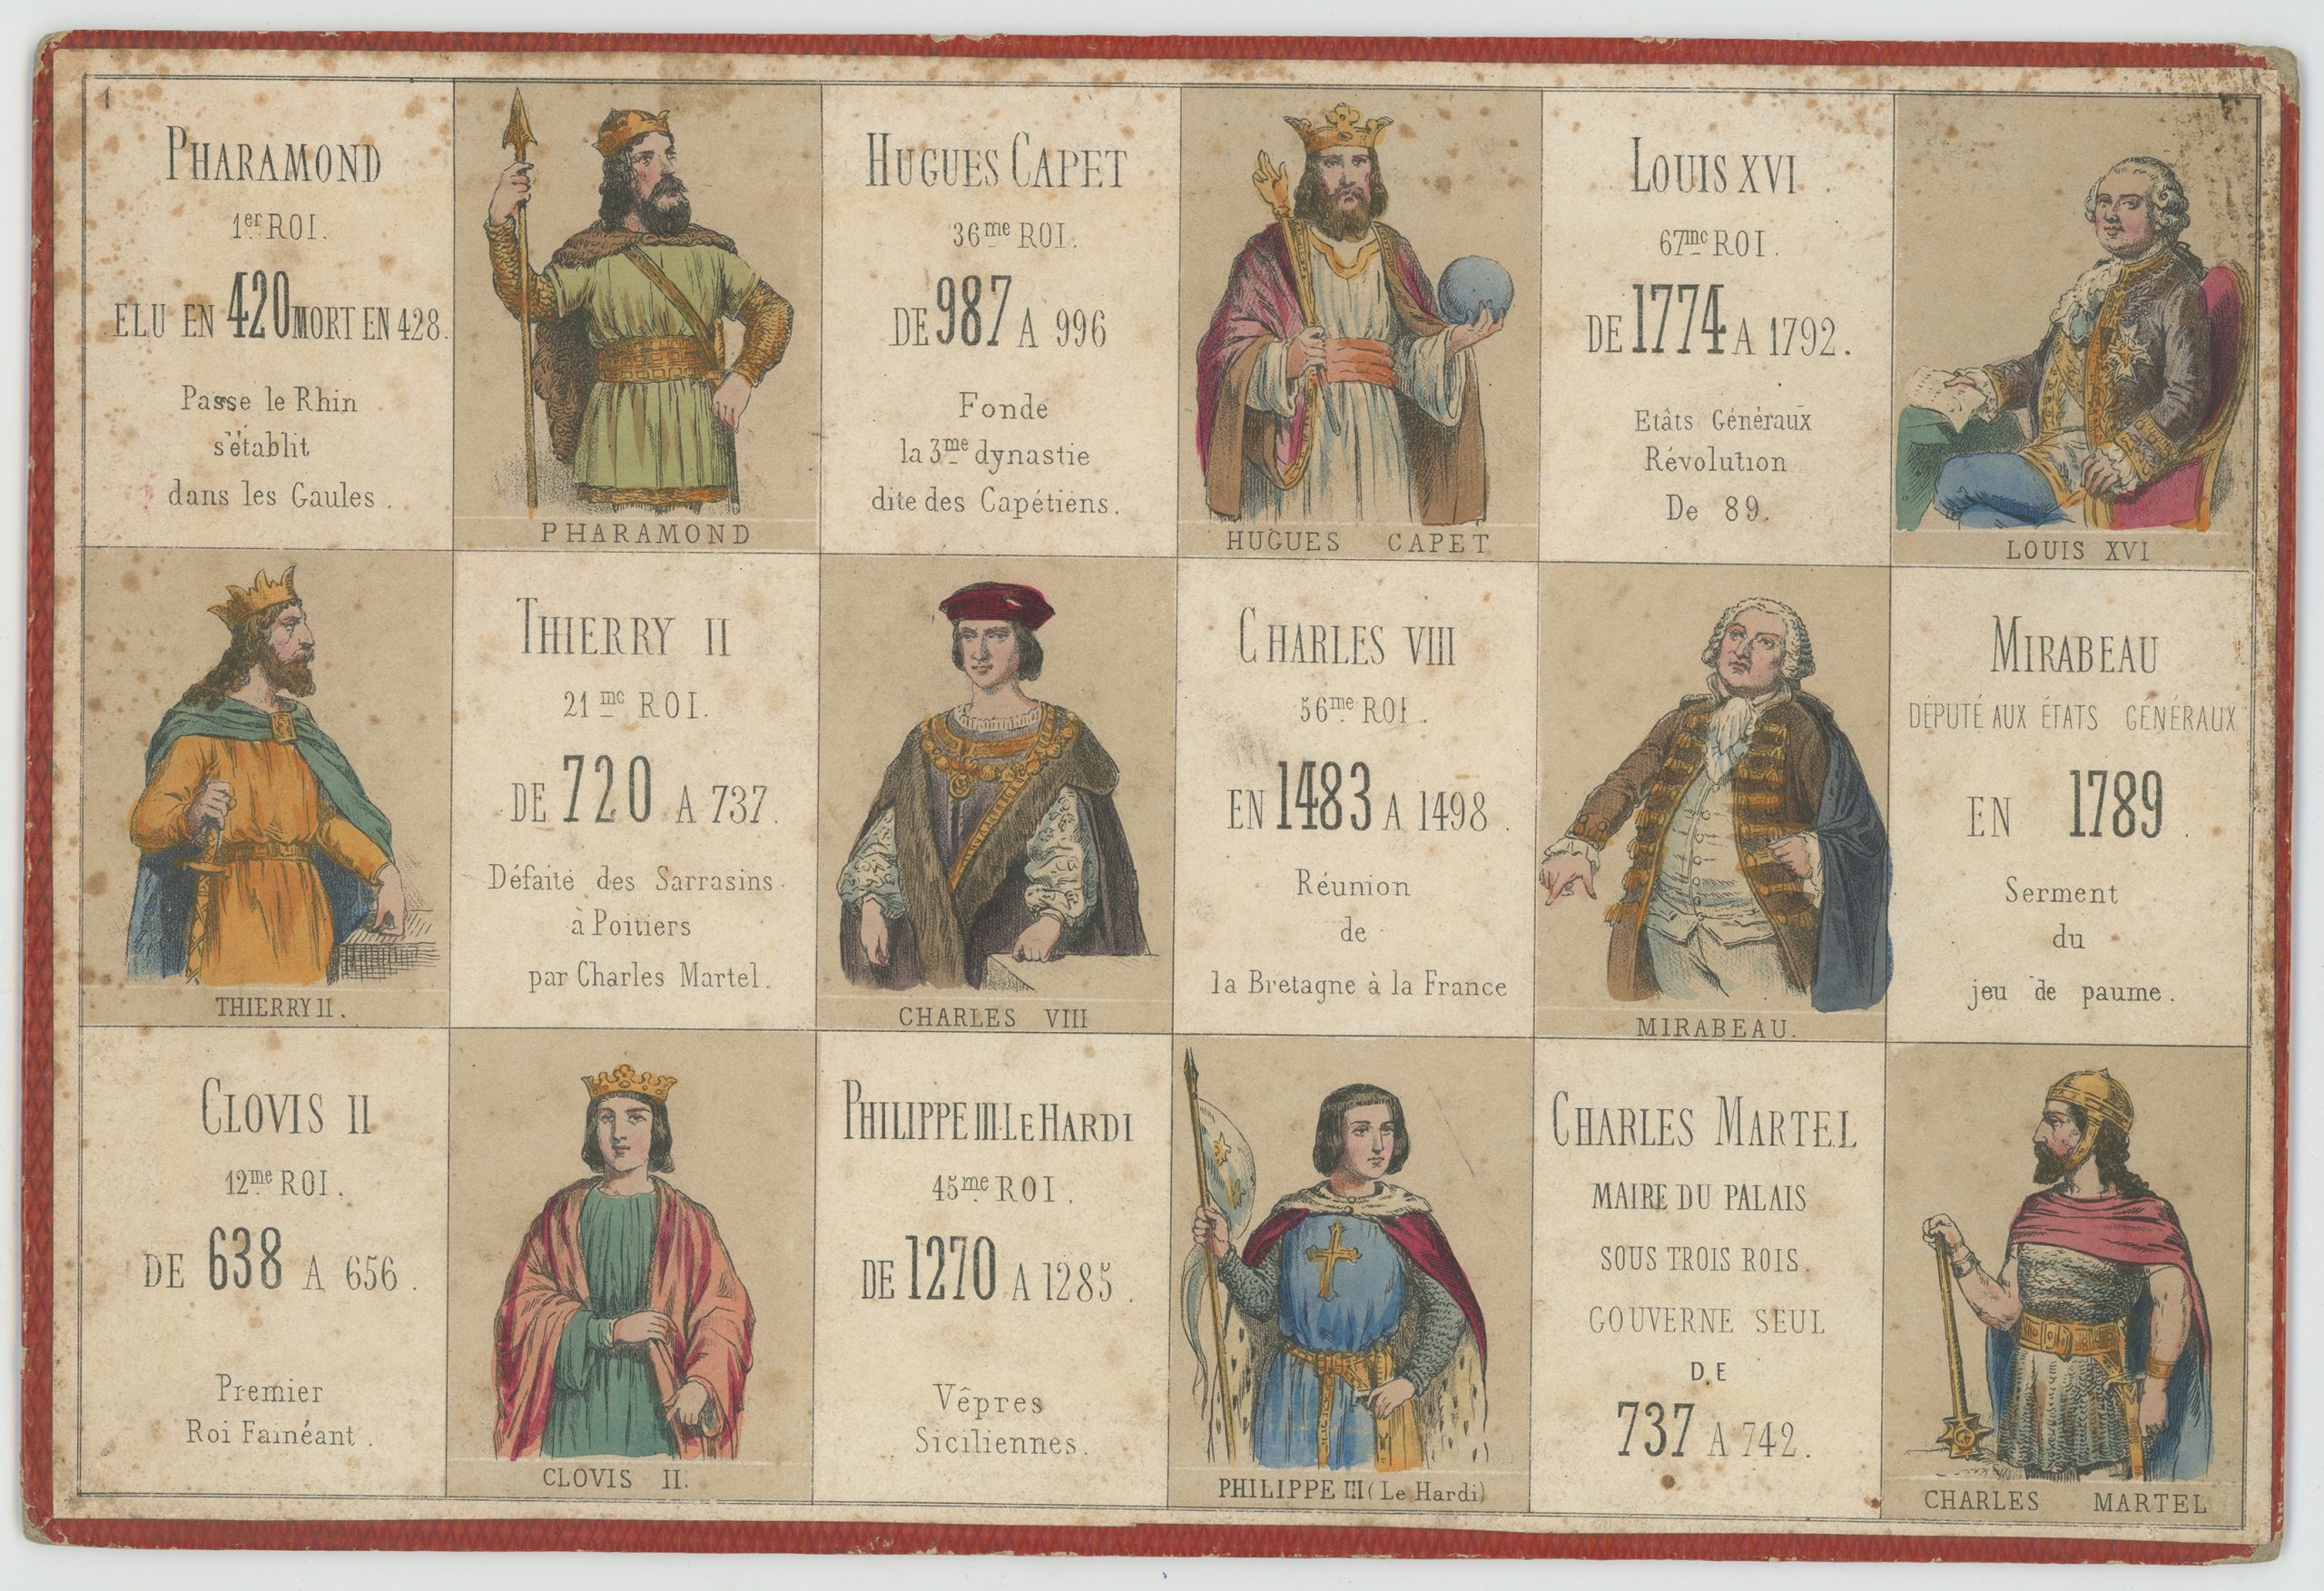 1
PHARAMOND
1er ROI.
ELU EN 420 MORT EN 428.
Passe le Rhin
s'établit
dans les Gaules.
PHARAMOND
HUGUES CAPET
36me ROI.
DE 987 A 996
Fonde
la 3me dynastie
dite des Capétiens.
HUGUES CAPET
LOUIS XVI
67me ROI.
DE 1774 A 1792.
Etâts Généraux
Révolution
De 89.
LOUIS XVI
THIERRY II.
THIERRY II
21me ROI.
DE 720 A 737.
Défaite des Sarrasins
à Poitiers
par Charles Martel.
CHARLES VIII
CHARLES VIII
56me ROI.
EN 1483 A 1498.
Réunion
de
la Bretagne à la France
MIRABEAU.
MIRABEAU
DÉPUTÉ AUX ÉTATS GÉNÉRAUX
EN 1789.
Serment
du
jeu de paume.
CLOVIS II
12me ROI.
DE 638 A 656.
Premier
Roi Fainéant.
CLOVIS II.
PHILIPPE III LE HARDI
45me ROI.
DE 1270 A 1285.
Vêpres
Siciliennes.
PHILIPPE III (Le Hardi)
CHARLES MARTEL
MAIRE DU PALAIS
SOUS TROIS ROIS.
GOUVERNE SEUL
DE
737 A 742.
CHARLES MARTEL